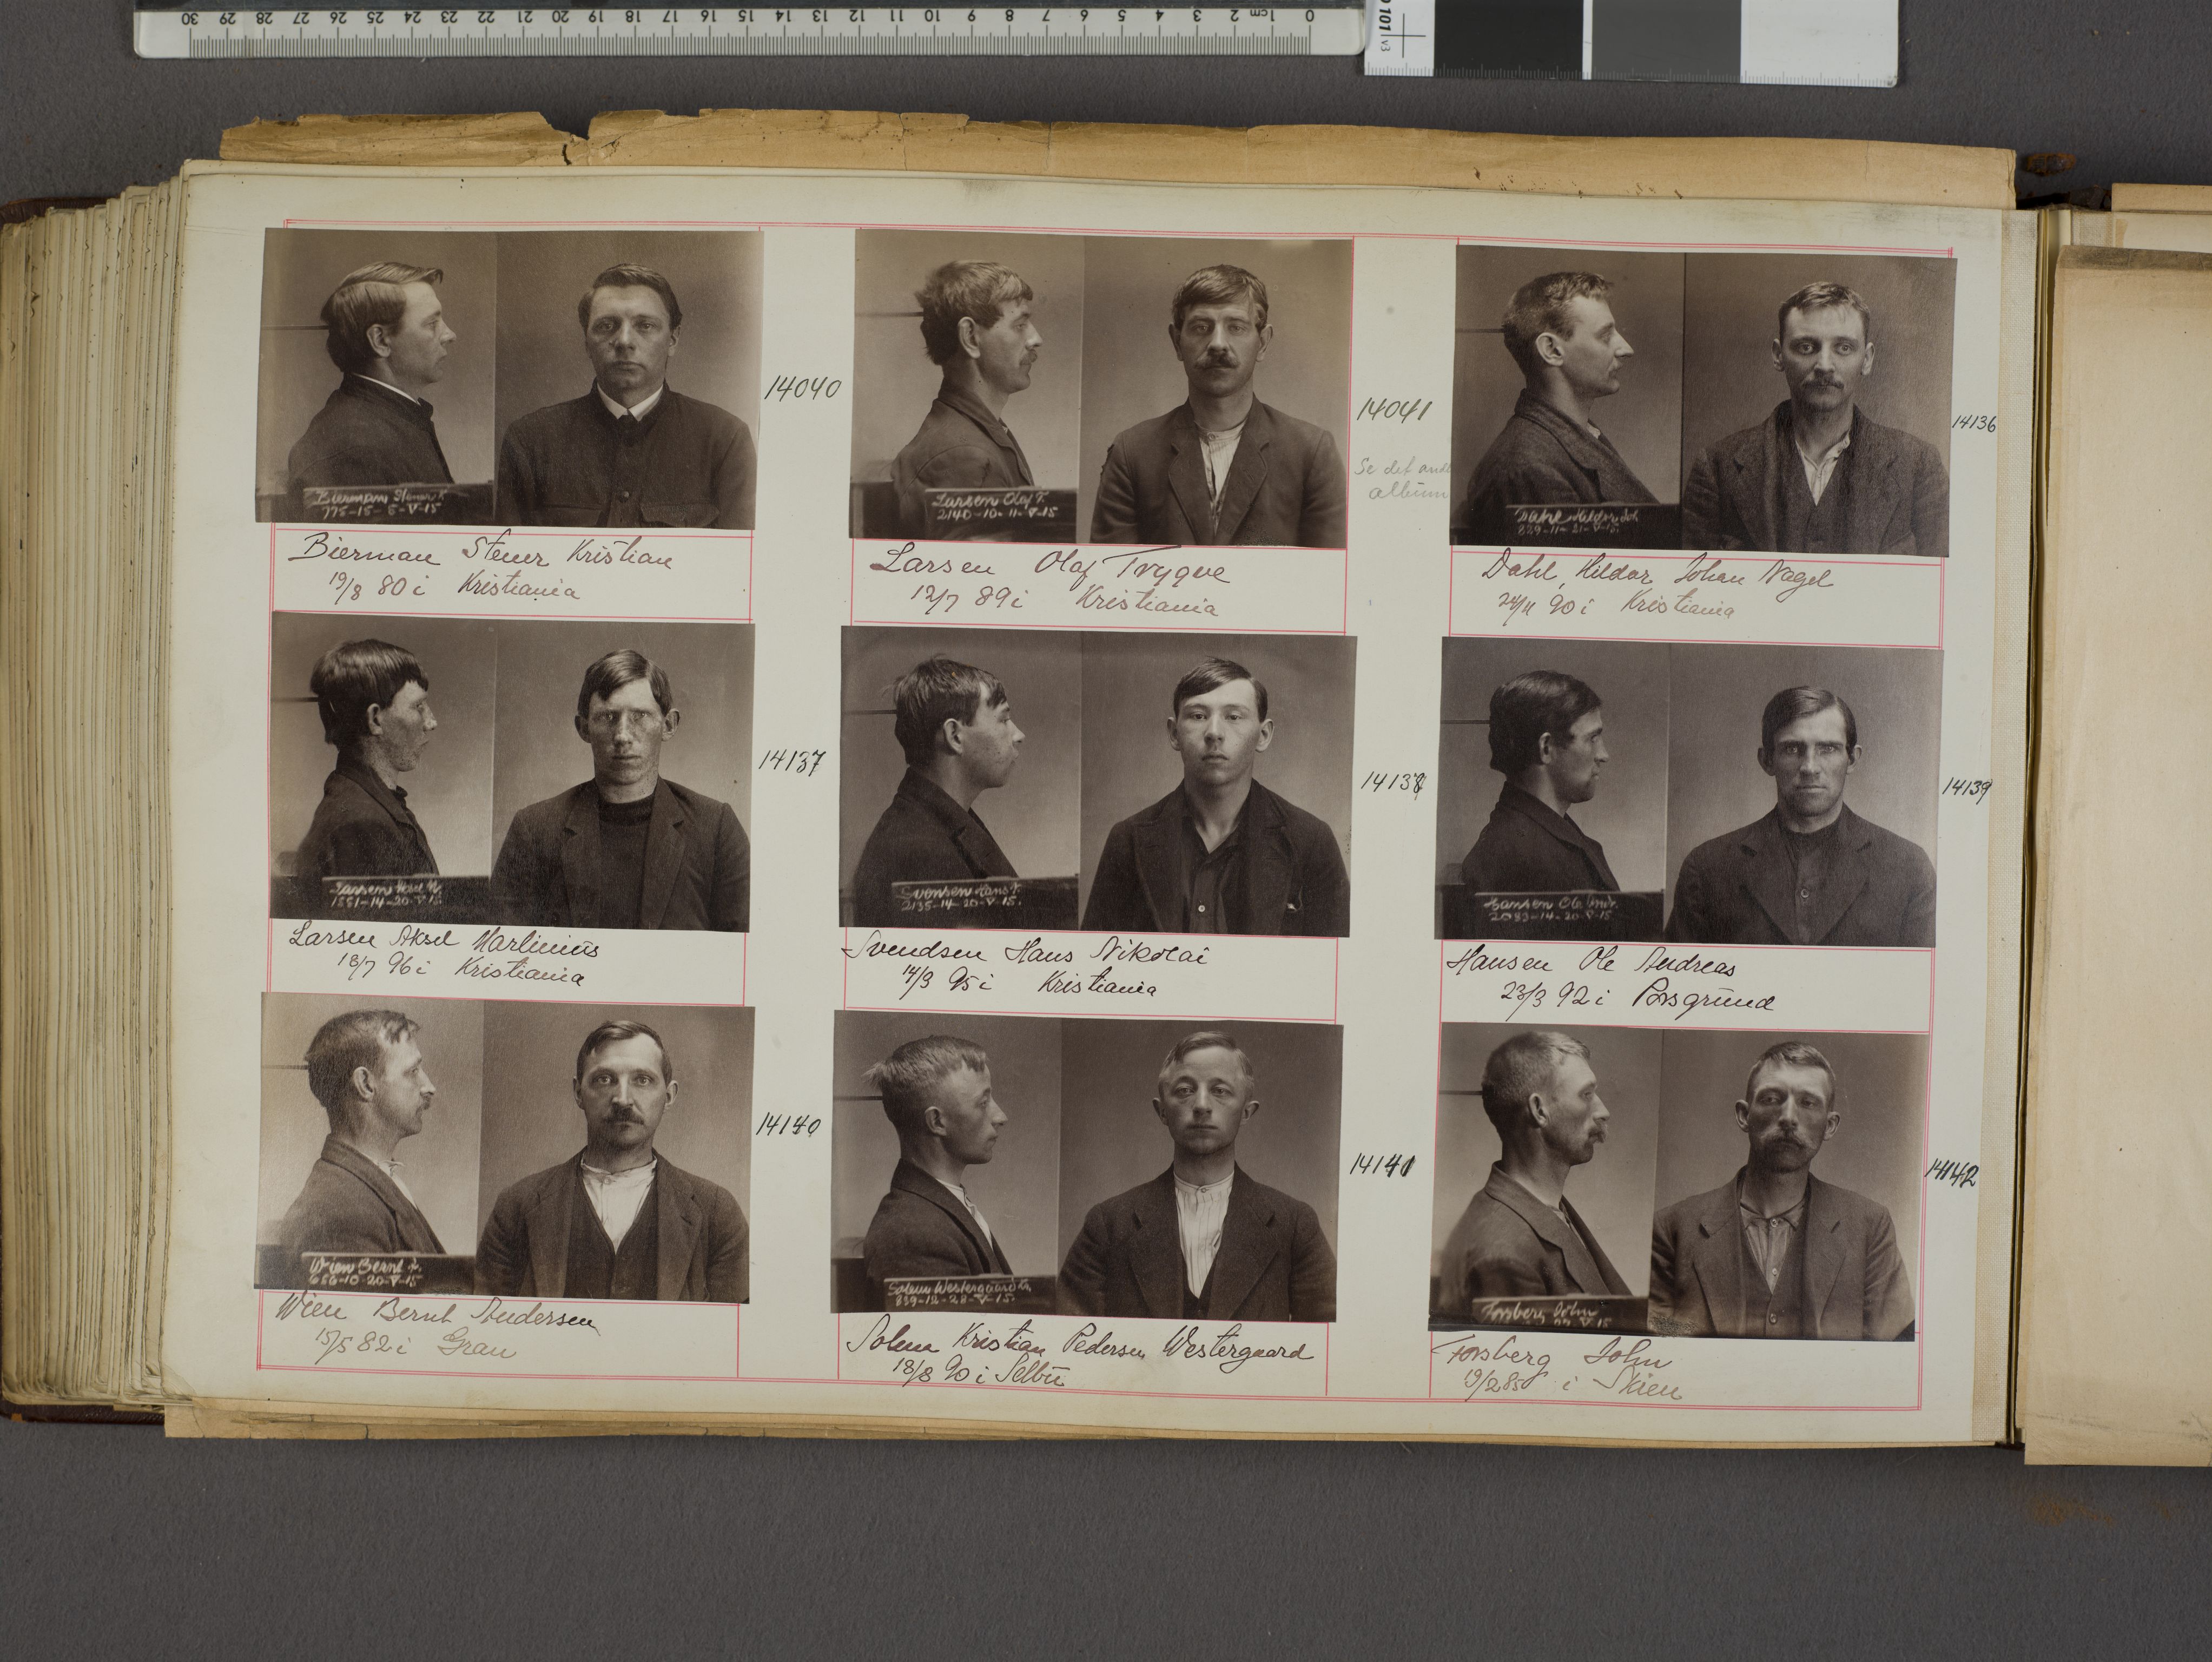 30 29 28 27 26 25 24 23 22 21 20 19 18 17 16 15 14 13 12 11 10 9 8 7 6 5 4 3 2 1cm 0
101 v3
Bierman Stener K
775-15-5-V-15
14040
Bierman Stener Kristian
19/8 80 i Kristiania
Larsen Olaf T.
2140-10-11-V-15
14041
Se det andl
album
Larsen Olaf Trygve
12/7 89 i Kristiania
Dahl Hildor Joh
829-11-21-V-15
14136
Dahl, Hildor Johan Nagel
24/11 90 i Kristiania
Larsen Aksel M.
1551-14-20-V-15.
14137
Larsen Aksel Martinius
18/7 96 i Kristiania
Svensen Hans N.
2135-14-20-V-15.
14138
Svendsen Hans Nikolai
14/3 95 i Kristiania
Hansen Ole Andr.
2083-14-20-V-15
14139
Hansen Ole Andreas
23/3 92 i Porsgrund
Wien Bernt A.
656-10-20-V-15
14140
Wien Bernt Andersen
15/5 82 i Gran
Solem Westergaard Kr.
839-12-28-V-15.
14141
Solem Kristian Pedersen Westergaard
18/8 90 i Selbu
Forsberg John
V-15
14142
Forsberg John
19/2 85 i Skien